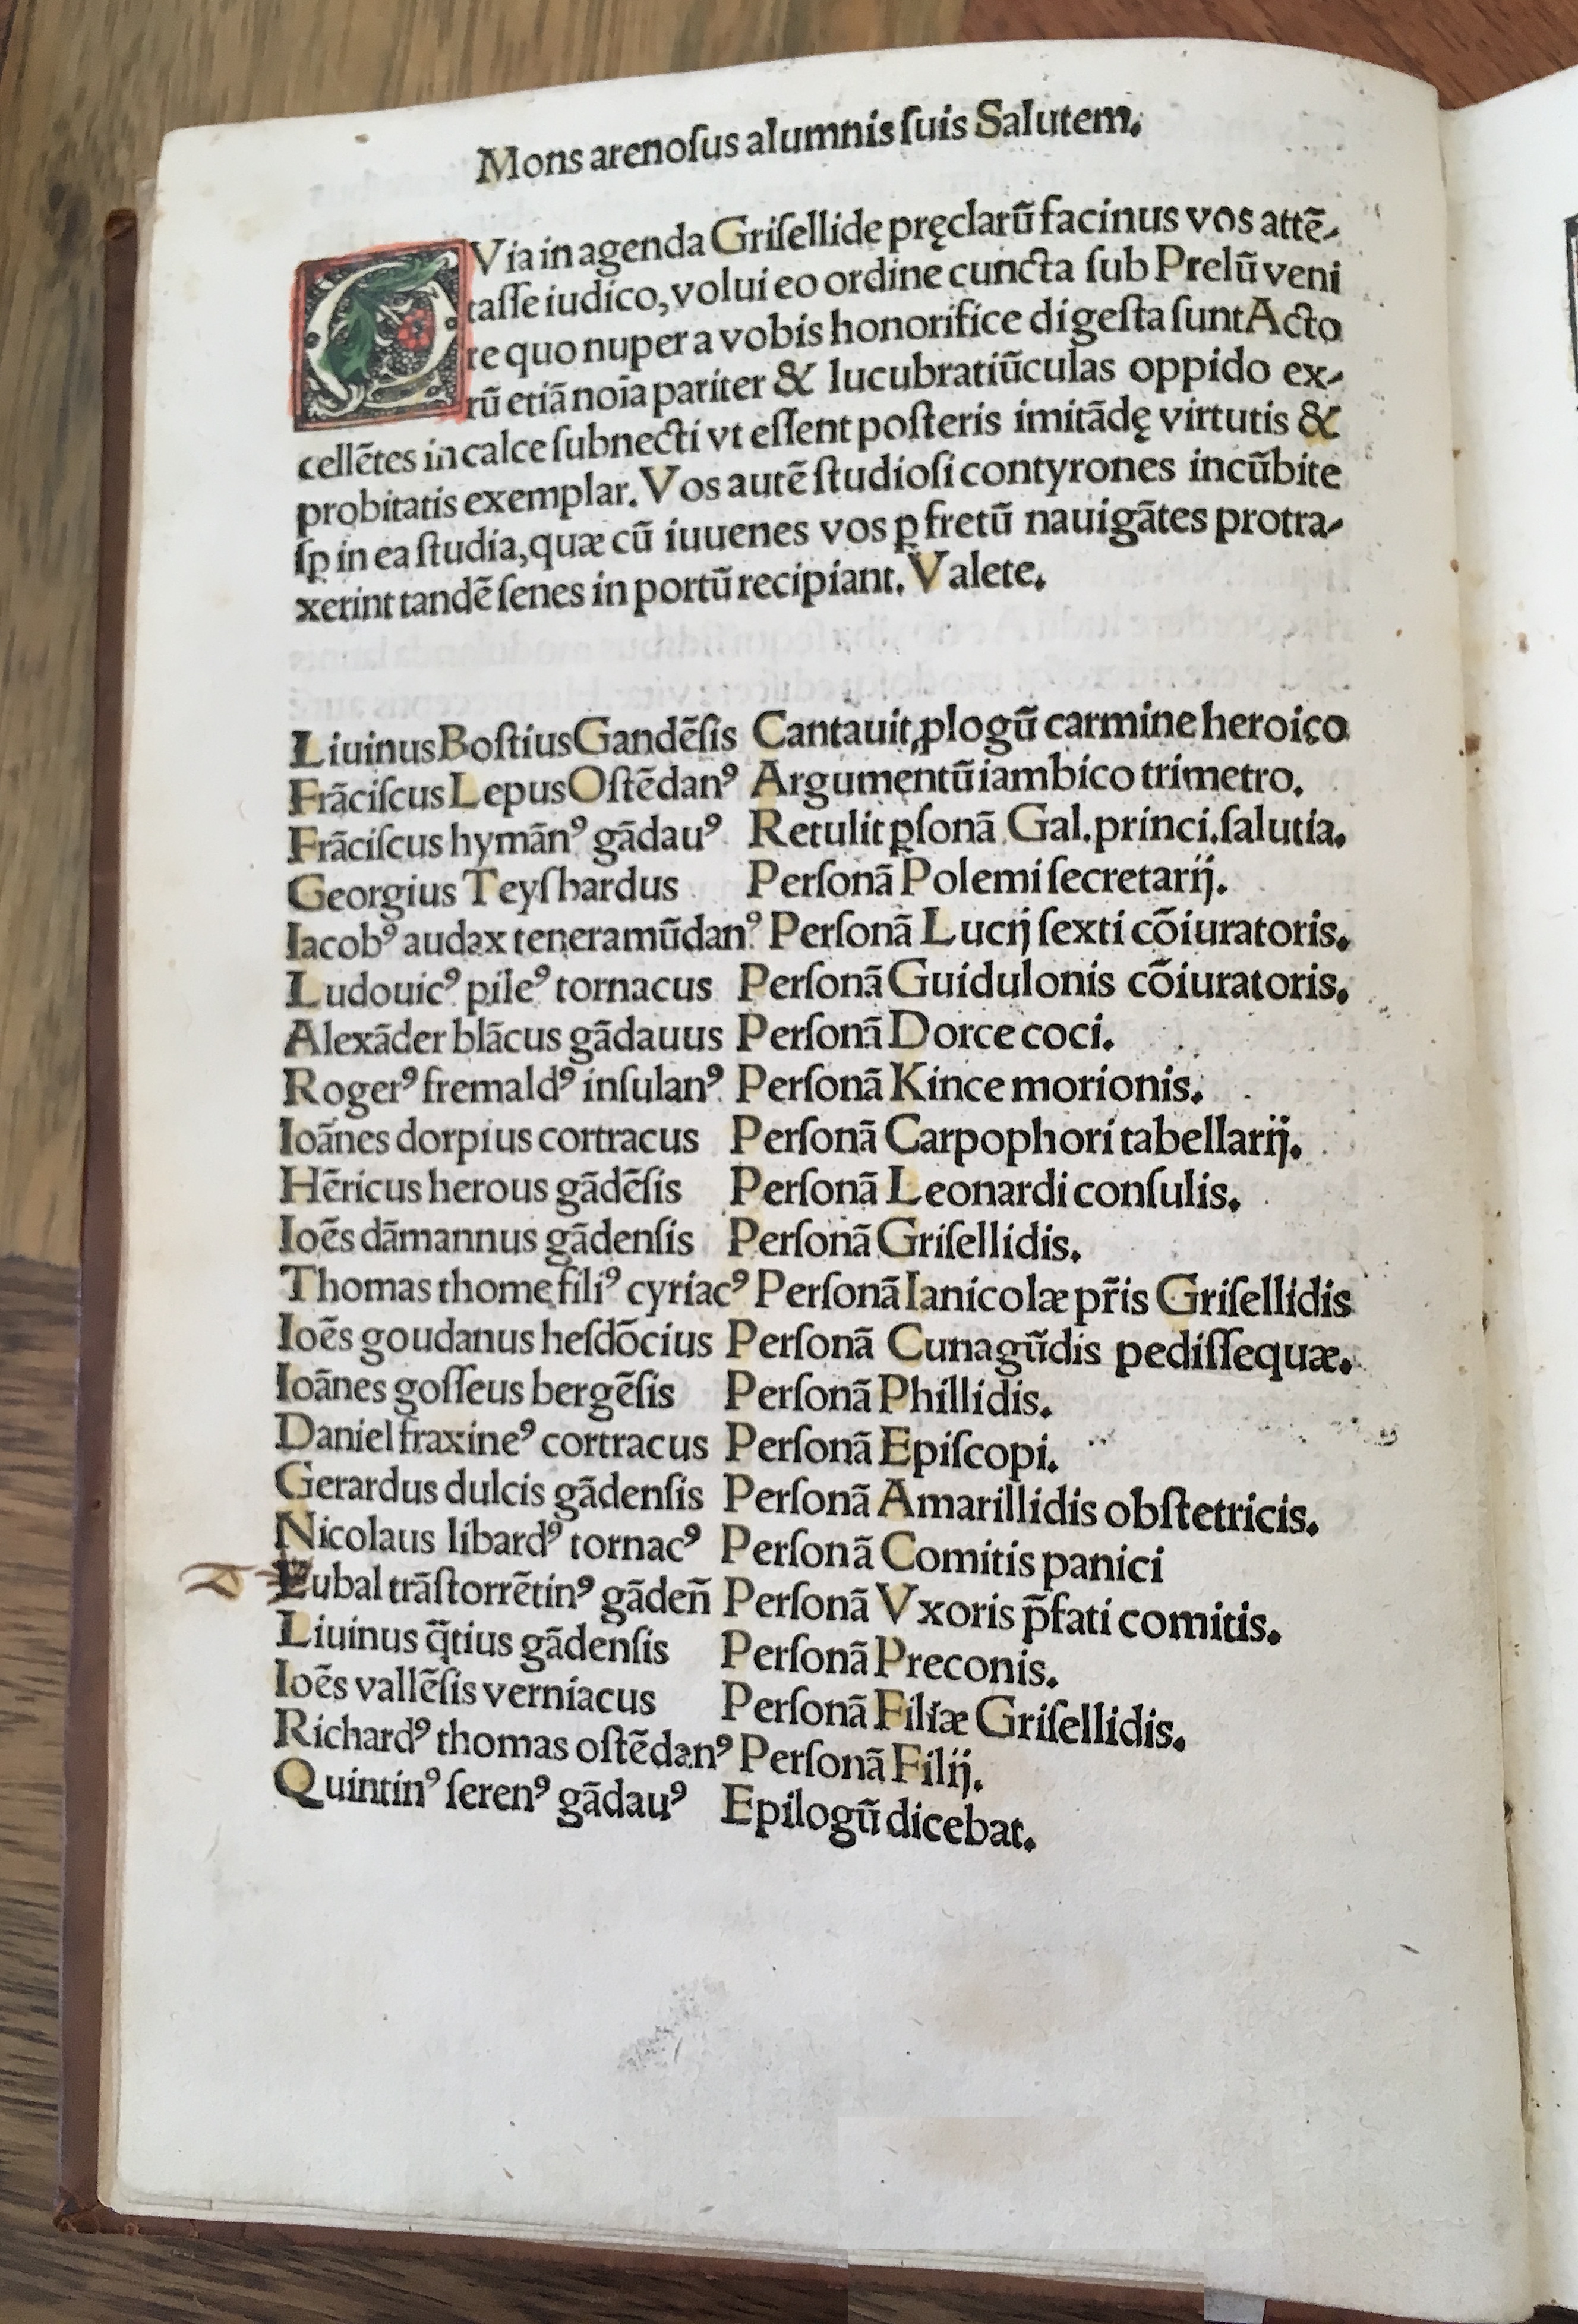 Mons arenoſus alumnis ſuis Salutem.
QVia in agenda Griſellide pręclarū facinus vos attē-
taſſe iudico, volui eo ordine cuncta ſub Prelū veni
re quo nuper a vobis honorifice digeſta ſunt Acto
rū etiā noīa pariter & lucubratiūculas oppido ex-
cellētes in calce ſubnecti vt eſſent poſteris imitādę virtutis &
probitatis exemplar. Vos autē ſtudioſi contyrones incūbite
ſꝑ in ea ſtudia, quæ cū iuuenes vos ꝑ fretū nauigātes protra-
xerint tandē ſenes in portū recipiant. Valete.
Liuinus Boſtius Gandēſis Cantauit ꝓlogū carmine heroico
Frāciſcus Lepus Oſtēdanꝰ Argumentū iambico trimetro.
Frāciſcus hymānꝰ gādauꝰ Retulit ꝑſonā Gal. princi. ſalutia.
Georgius Teyſhardus Perſonā Polemi ſecretarij.
Iacobꝰ audax teneramūdanꝰ Perſonā Lucij ſexti cōiuratoris.
Ludouicꝰ pileꝰ tornacus Perſonā Guidulonis cōiuratoris.
Alexāder blācus gādauus Perſonā Dorce coci.
Rogerꝰ fremaldꝰ inſulanꝰ Perſonā Kince morionis.
Ioānes dorpius cortracus Perſonā Carpophori tabellarij.
Hēricus herous gādēſis Perſonā Leonardi conſulis.
Ioēs dāmannus gādenſis Perſonā Griſellidis.
Thomas thomę filiꝰ cyriacꝰ Perſonā Ianicolæ pr̄is Griſellidis
Ioēs goudanus heſdōcius Perſonā Cunagūdis pediſſequæ.
Ioānes goſſeus bergēſis Perſonā Phillidis.
Daniel fraxineꝰ cortracus Perſonā Epiſcopi.
Gerardus dulcis gādenſis Perſonā Amarillidis obſtetricis.
Nicolaus libardꝰ tornacꝰ Perſonā Comitis panici
Eubal trāſtorrētinꝰ gāden̄ Perſonā Vxoris p̄fati comitis.
Liuinus q̄tius gādenſis Perſonā Preconis.
Ioēs vallēſis verniacus Perſonā Filiæ Griſellidis.
Richardꝰ thomas oſtēdanꝰ Perſonā Filij.
Quintinꝰ ſerenꝰ gādauꝰ Epilogū dicebat.